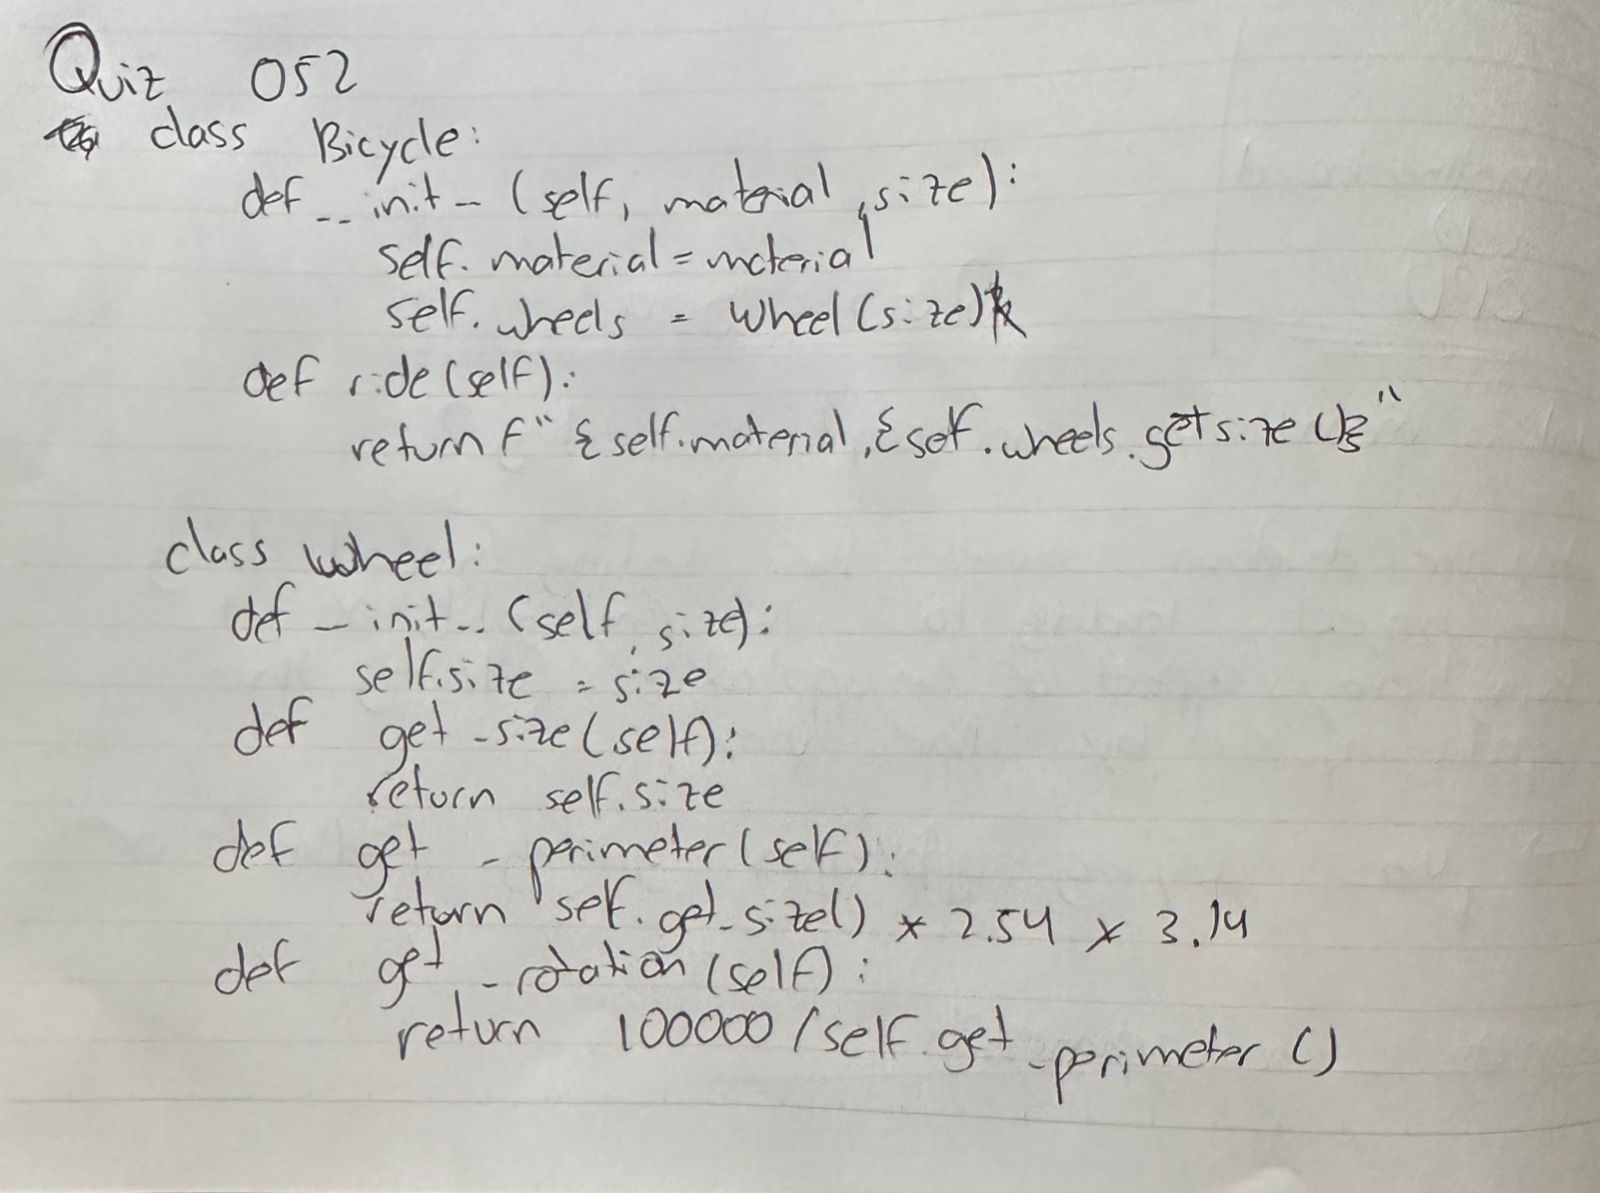 Quiz 052
class Bicycle:
def __init_ (self, material, size):
self.material = material
self.wheels = Wheel(size)
def ride(self):
return f"{self.material,{self.wheels.getsize()}"
class Wheel:
def _init__ (self, size):
self.size = size
def get_size(self):
return self.size
def get_perimeter(self):
return self.get_size() * 2.54 * 3.14
def get_rotation(self):
return 100000/self.get_perimeter()